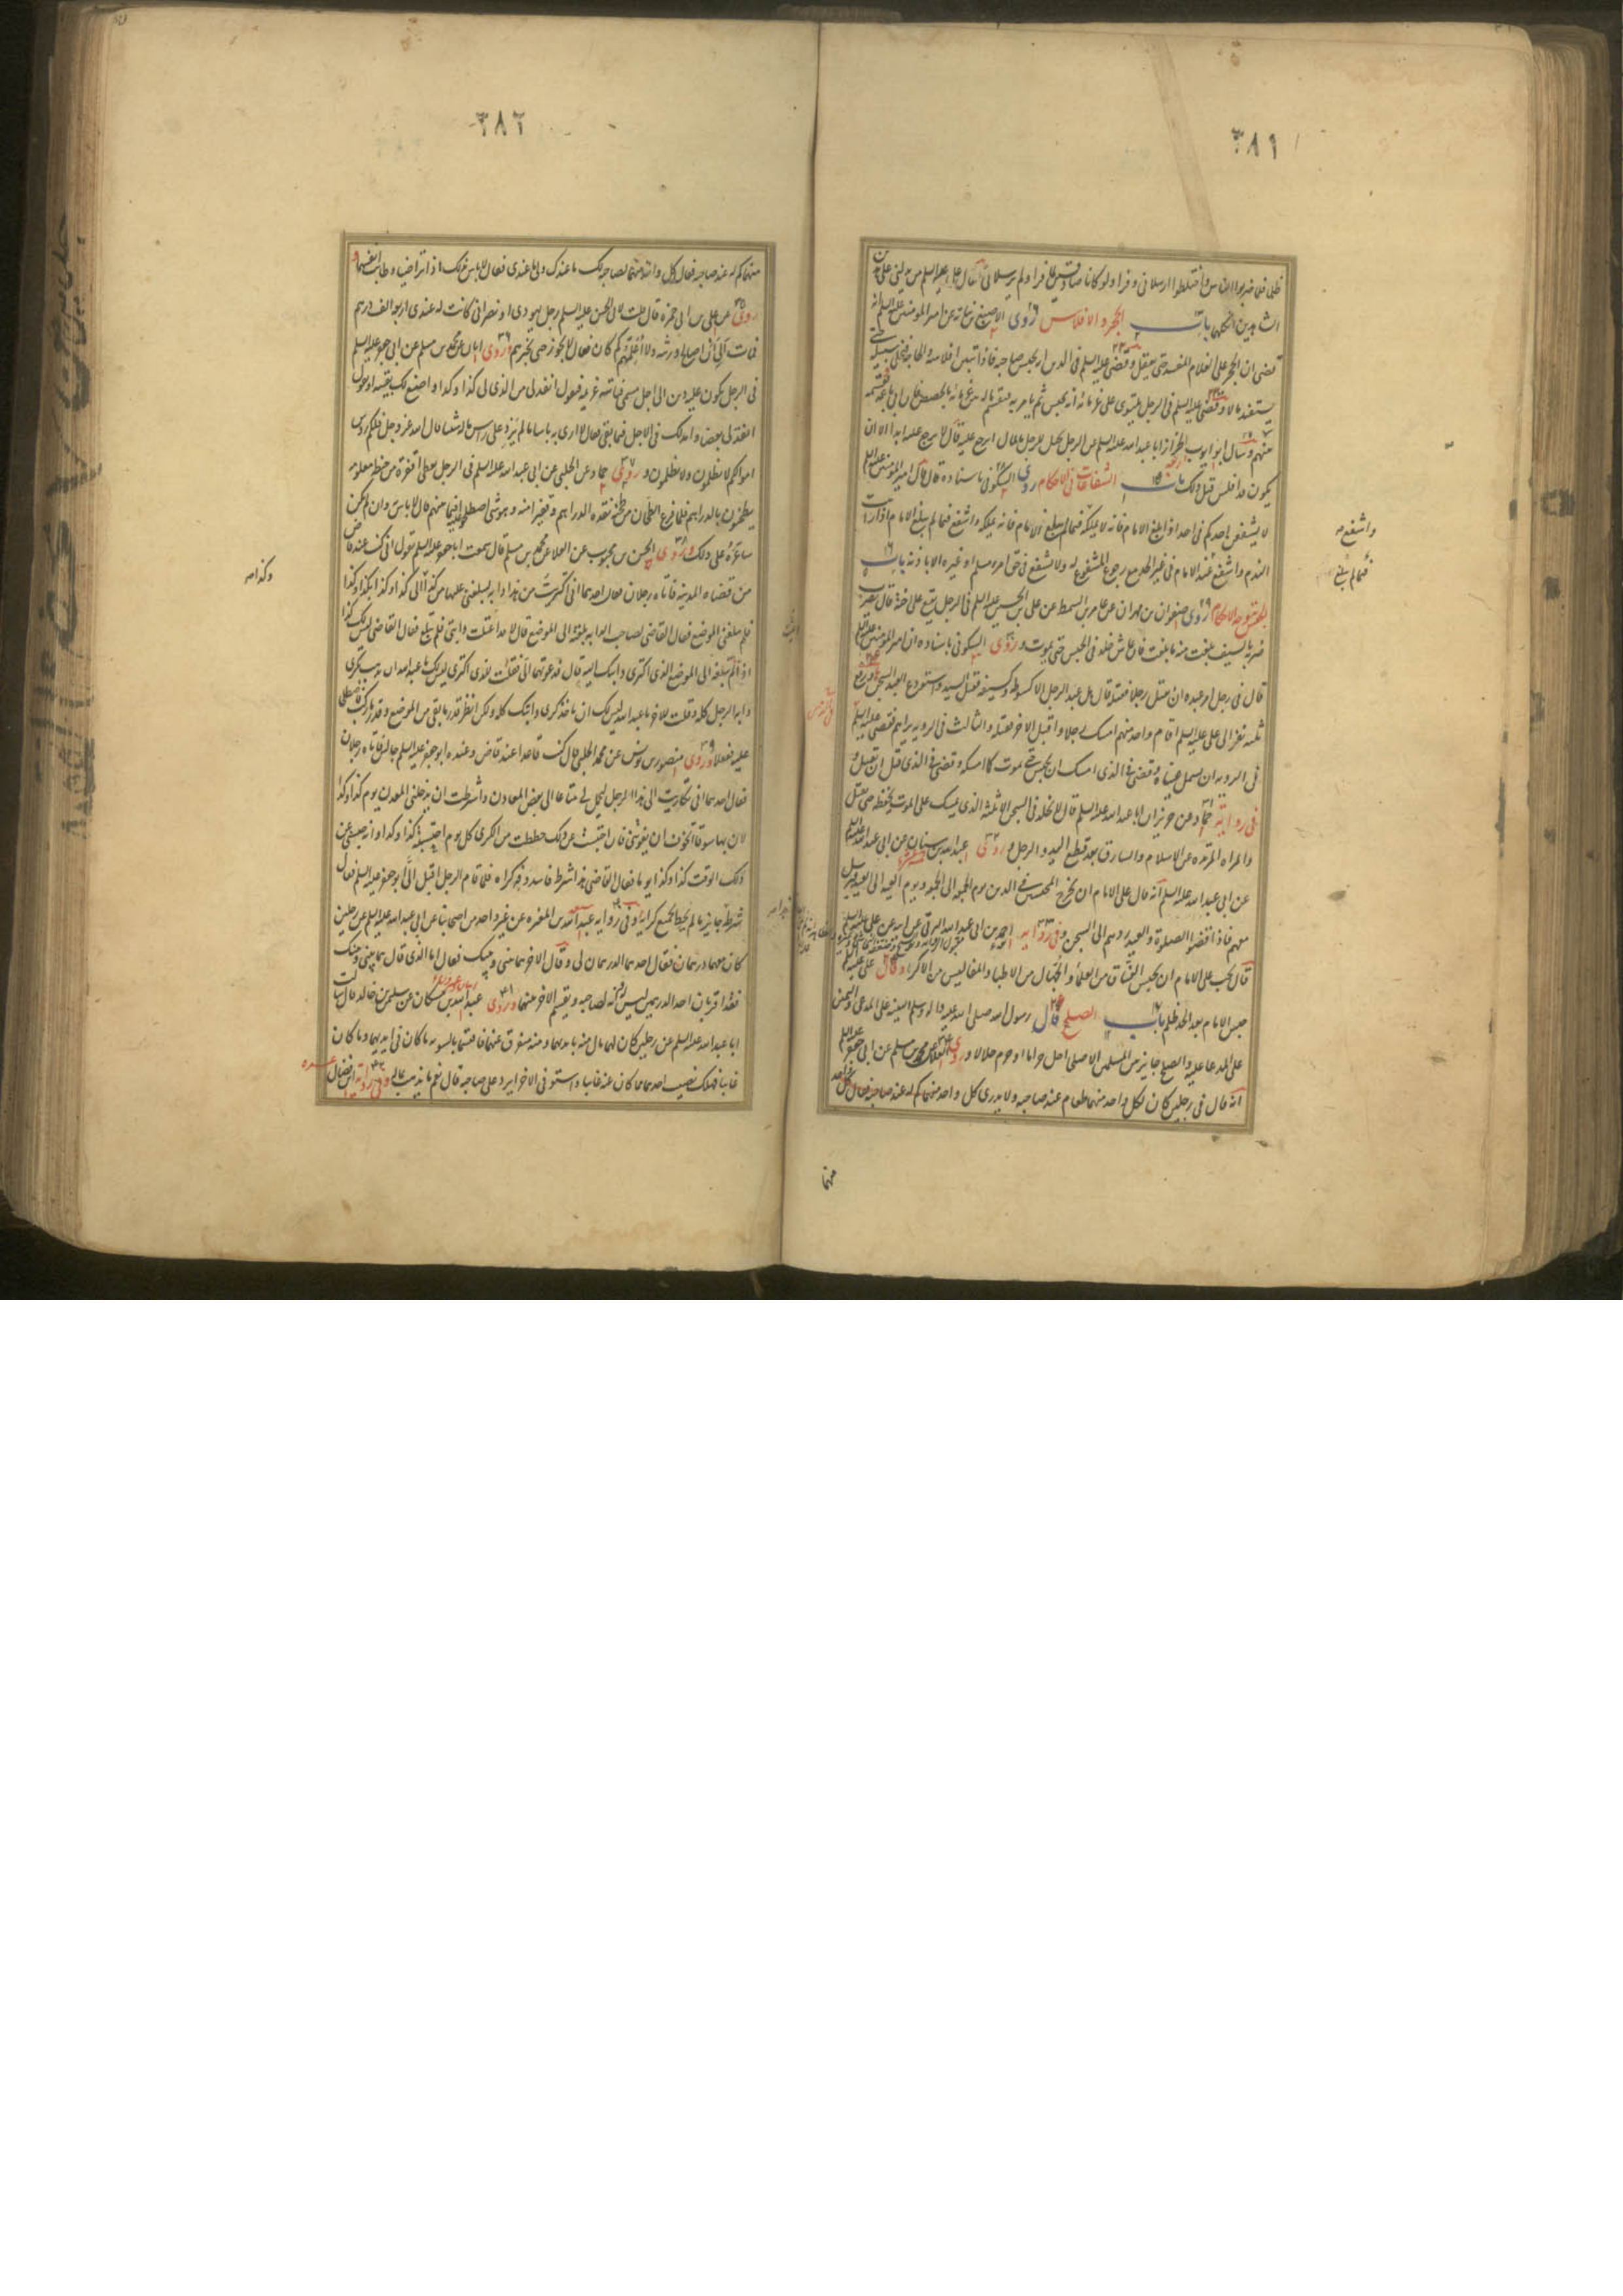 ٣٨١
فلما ضرب الناس واختلطوا ارسلانى وفرا ولو كانا صادقين لما فرا ولم يرسلانى فقال على عليه السلم من يدلنى على هذين
الشاهدين انكلهما باب الحجر والافلاس روى الاصبغ بن نباته عن امير المؤمنين عليه السلم انه
قضى ان الحجر على الغلام المفسد حتى يعقل وقضى عليه السلم فى الدين انه يحبس صاحبه فاذا تبين افلاسه والحاجة فيخلى سبيله حتى
يستفيد مالا وقضى عليه السلم فى الرجل يلتوى على غرمائه انه يحبس ثم يامر به فيقسم ماله بين غرمائه بالحصص فان ابى باعه فقسمه
منهم وسال ابو ايوب الخزاز ابا عبد الله عليه السلم عن الرجل يحيل الرجل بالمال ايرجع عليه قال لا يرجع عليه ابدا الا ان
يكون قد افلس قبل ذلك باب الشفاعات فى الاحكام روى السكونى باسناده قال قال امير المؤمنين عليه السلم
لا يشفعن احدكم فى احد اذا بلغ الامام فانه لا يملكه فيما لم يبلغ الامام فانه يملكه واشفع فيما لم يبلغ الامام اذا رايت
الندم واشفع عند الامام فى غير الحد مع رجوع المشفوع له ولا تشفع فى حق امرء مسلم او غيره الا باذنه باب
الحبس بتوجه الاحكام روى صفوان بن مهران عن عامر بن السمط عن على بن الحسين عليه السلم فى الرجل يقع على اخته قال يضرب
ضربة بالسيف بلغت منه ما بلغت فان عاش خلد فى الحبس حتى يموت وروى السكونى باسناده ان امير المؤمنين عليه السلم
قال فى رجل امر عبده ان يقتل رجلا فقتله قال هل عبد الرجل الا كسوطه وكسيفه فقتل السيد واستودع العبد السجن ورفع
ثلثة نفر الى على عليه السلم اما واحد منهم امسك رجلا واقبل الاخر فقتله والثالث فى الرويه يراهم فقضى عليه السلم
فى الرويه ان يسمل عيناه وقضى فى الذى امسك ان يحبس حتى يموت كما امسكه وقضى فى الذى قتل ان يقتل و
فى رواية حماد عن حريز ان ابا عبد الله عليه السلم قال لا يخلد فى السجن الا ثلثة الذى يمسك على الموت يحفظه حتى يقتل
والمراه المرتده عن الاسلام والسارق بعد قطع اليد والرجل وروى عبد الله بن سنان عن ابى عبد الله عليه السلم
عن ابى عبد الله عليه السلم انه قال على الامام ان يخرج المحبسين فى الدين يوم الجمعه الى الجمعه ويوم العيد الى العيد فيرسل
معهم فاذا قضوا الصلوة والعيد ردهم الى السجن وفى رواية احمد بن ابى عبد الله البرقى عن ابيه عن على عليه السلم
قال يجب على الامام ان يحبس الفساق من العلماء والجهال من الاطباء والمفاليس من الاكرياء وقال على عليه السلم
حبس الامام بعد الحد ظلم باب الصلح قال رسول الله صلى الله عليه واله وسلم البينة على المدعى واليمين
على المدعا عليه والصلح جايز بين المسلمين الا صلحا احل حراما او حرم حلالا وروى العلاء عن محمد بن مسلم عن ابى جعفر عليه السلم
انه قال فى رجلين كان لكل واحد منهما طعام عند صاحبه ولا يدرى كل واحد منهما كم له عند صاحبه فقال كل واحد
واشفع
فيما لم يبلغ
منهما
٣٨٢
منهما كم له عند صاحبه فقال كل واحد منهما لصاحبه لك ما عندك ولى ما عندى فقال لا باس بذلك اذا تراضيا وطابت انفسهما و
روى عن على بن ابى حمزه قال قلت لابى الحسن عليه السلم رجل يهودى او نصرانى كانت له عندى اربعة الف درهم
فمات الى ان اصالح ورثته ولا اعلمهم كم كان فقال لا يجوز حتى تخبرهم وروى ابان عن محمد بن مسلم عن ابى جعفر عليه السلم
فى الرجل يكون عليه دين الى اجل مسمى فياتيه غريمه فيقول انقد لى من الذى لى كذا وكذا واضع لك بقيته او يقول
انقد لى بعضا وامد لك فى الاجل فيما بقى فقال لا ارى به باسا ما لم يزد على راس ماله شيئا قال الله عز وجل فلكم رؤس
اموالكم لا تظلمون ولا تظلمون وروى حماد عن الحلبى عن ابى عبد الله عليه السلم فى الرجل يعطى اقفزة من حنطة معلومة
يطحنون بالدراهم فلما فرغ الطحان من طحنه نقده الدراهم وقفيزا منه وهو شى اصطلحوا عليه فيما بينهم قال لا باس وان لم يكن
ساعره على ذلك وروى الحسن بن محبوب عن العلا عن محمد بن مسلم قال سمعت ابا جعفر عليه السلم يقول انى كنت عند قاض
من قضاة المدينة فاتاه رجلان فقال احدهما انى اكتريت من هذا دابه ليبلغنى عليها من كذا الى كذا وكذا بكذا وكذا
فلم يبلغنى الموضع فقال القاضى لصاحب الدابه بلغته الى الموضع قال لا قد اعتلت دابتى فلم تبلغ فقال القاضى ليس لك كرا
اذا لم تبلغه الى الموضع الذى اكترى دابتك اليه قال فدعوتهما الى فقلت للذى اكترى ليس لك يا عبد الله ان تذهب بكرى
دابه الرجل كله وقلت للاخر يا عبد الله ليس لك ان تاخذ كرى دابتك كله ولكن انظر قدر ما بقى من الموضع وقدر ما ركبت فاصطلحا
عليه ففعلا وروى منصور بن يونس عن محمد الحلبى قال كنت قاعدا عند قاض وعنده ابو جعفر عليه السلم جالس فاتاه رجلان
فقال احدهما انى تكاريت ابل هذا الرجل ليحمل لى متاعا الى بعض المعادن واشترطت ان يدخلنى المعدن يوم كذا وكذا
لان بها سوقا اتخوف ان يفوتنى فان احتبست عن ذلك حططت من الكرى كل يوم احتبسته كذا وكذا وانه حبسنى عن
ذلك الوقت كذا وكذا يوما فقال القاضى هذا شرط فاسد وفه كراه فلما قام الرجل اقبل الى ابو جعفر عليه السلم فقال
شرطه جايز ما لم يحط بجميع كرايه وفى رواية عبد الله بن المغيره عن غير واحد من اصحابنا عن ابى عبد الله عليه السلم عن رجلين
كان معهما درهمان فقال احدهما الدرهمان لى وقال الاخر هما بينى وبينك فقال اما الذى قال هما بينى وبينك
فقد اقر بان احد الدرهمين ليس له وانه لصاحبه ويقسم الاخر بينهما وروى عبد الله بن مسكان عن سليمن بن خالد قال سالت
ابا عبد الله عليه السلم عن رجلين كان لهما مال منه بايديهما ومنه متفرق عنهما فاقتسما بالسويه ما كان فى ايديهما وما كان
غايبا فهلك نصيب احدهما مما كان عنه غايبا واستوفى الاخر ايرد على صاحبه قال نعم ما يذهب بماله وفى رواية ابن فضال
وكذا